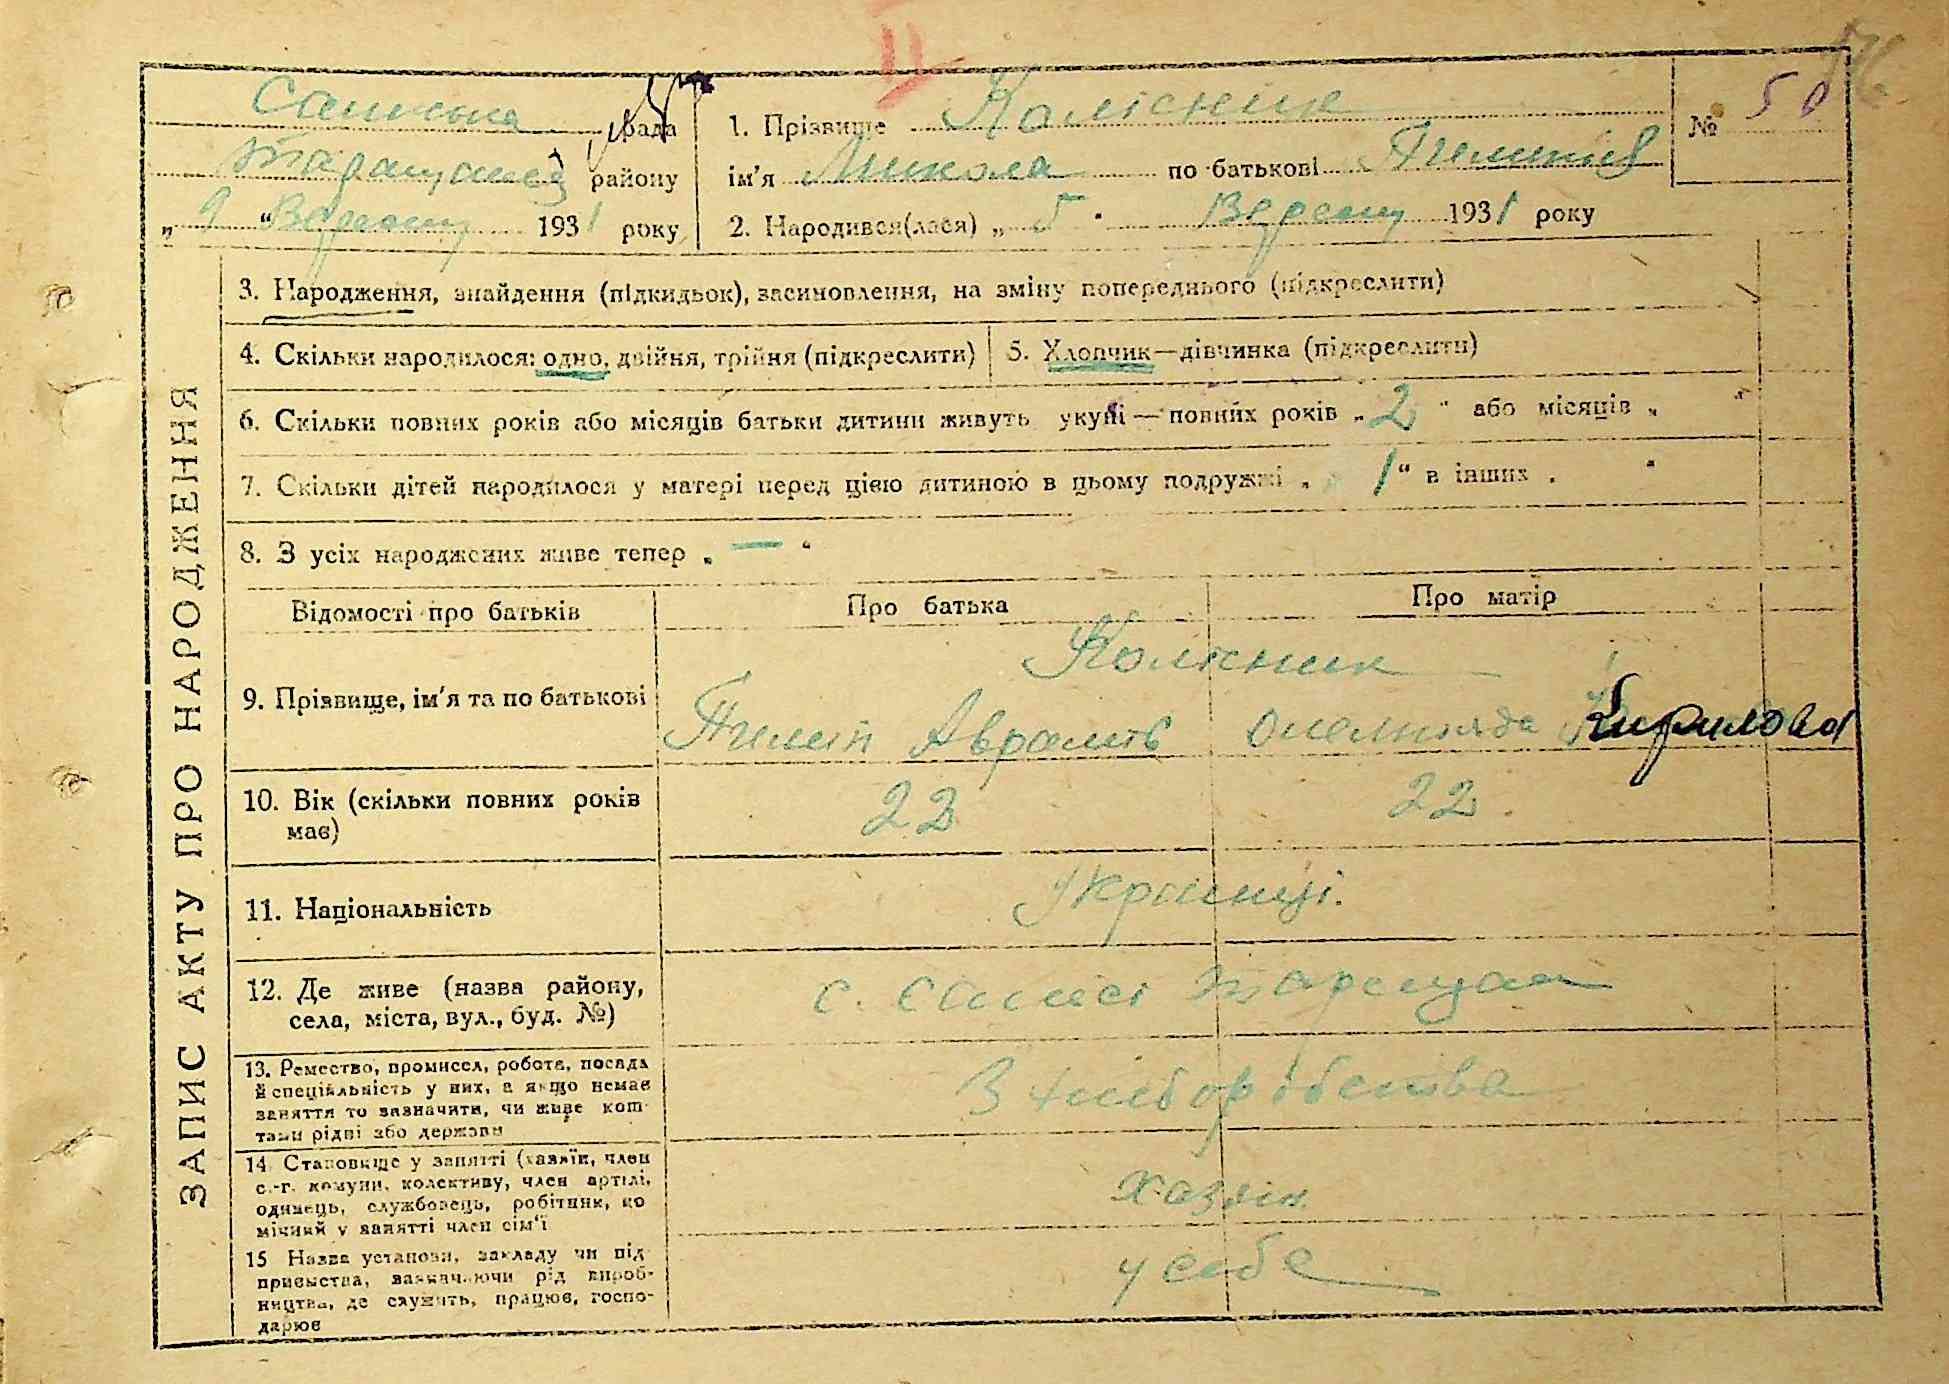 рада 1. Прізвище Колісник № 50
Таращанс району ім'я Микола по батькові Пилипів
„ 9 “ Вересня 1931 року 2. Народився(лася) „ 5 “ Вересня 1931 року
ЗАПИС АКТУ ПРО НАРОДЖЕННЯ
3. Народження, знайдення (підкидьок), засиновлення, на зміну попереднього (підкреслити)
4. Скільки народилося: одно, двійня, трійня (підкреслити) 5. Хлопчик—дівчинка (підкреслити)
6. Скільки повних років або місяців батьки дитини живуть укупі — повних років „ 2 “ або місяців „ “
7. Скільки дітей народилося у матері перед цією дитиною в цьому подружжі „ 1 “ в інших „ “
8. З усіх народжених живе тепер „ — “
Відомості про батьків Про батька Про матір
Колісник
9. Прізвище, ім'я та по батькові Пилип Аврамів Кирилова
10. Вік (скільки повних років 22 22
має)
11. Національність Українці.
12. Де живе (назва району, с.
села, міста, вул., буд. №)
13. Ремество, промисел, робота, посада
й спеціяльність у них, а якщо немає З хліборобства
заняття то зазначити, чи живе кош-
тами рідні або держави
14. Становище у занятті (хазяїн, член
с.-г. комуни, колективу, член артілі, хазяїн
одинець, службовець, робітник, по
мічний у занятті член сім'ї
15 Назва установи, закладу чи під у себе
приємства, зазначаючи рід вироб-
ництва, де служить, працює, госпо-
дарює